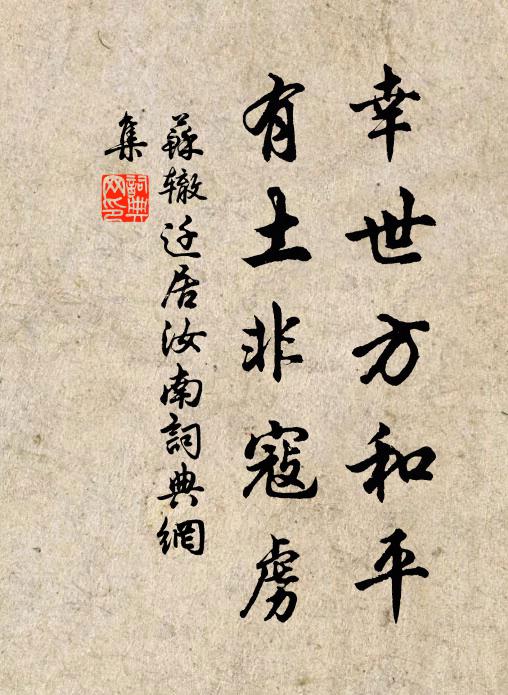 幸世方和平
有土非寇虏
蘇辙迁居汝南詞典網
集
詞典
网印